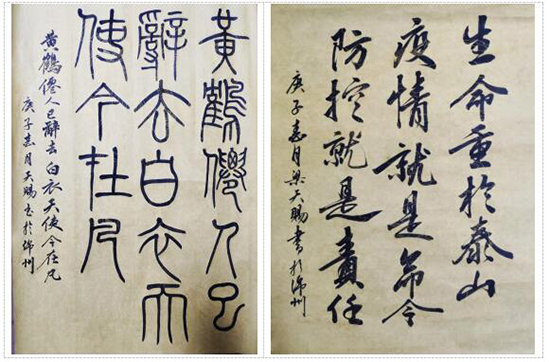 黃鶴僊人已
辭去白衣天
使今在凡
黄鶴僊人已辭去白衣天使今在凡
庚子春月天賜书於錦州
生命重於泰山
疫情就是命令
防控就是責任
庚子春月梁天賜書於錦州